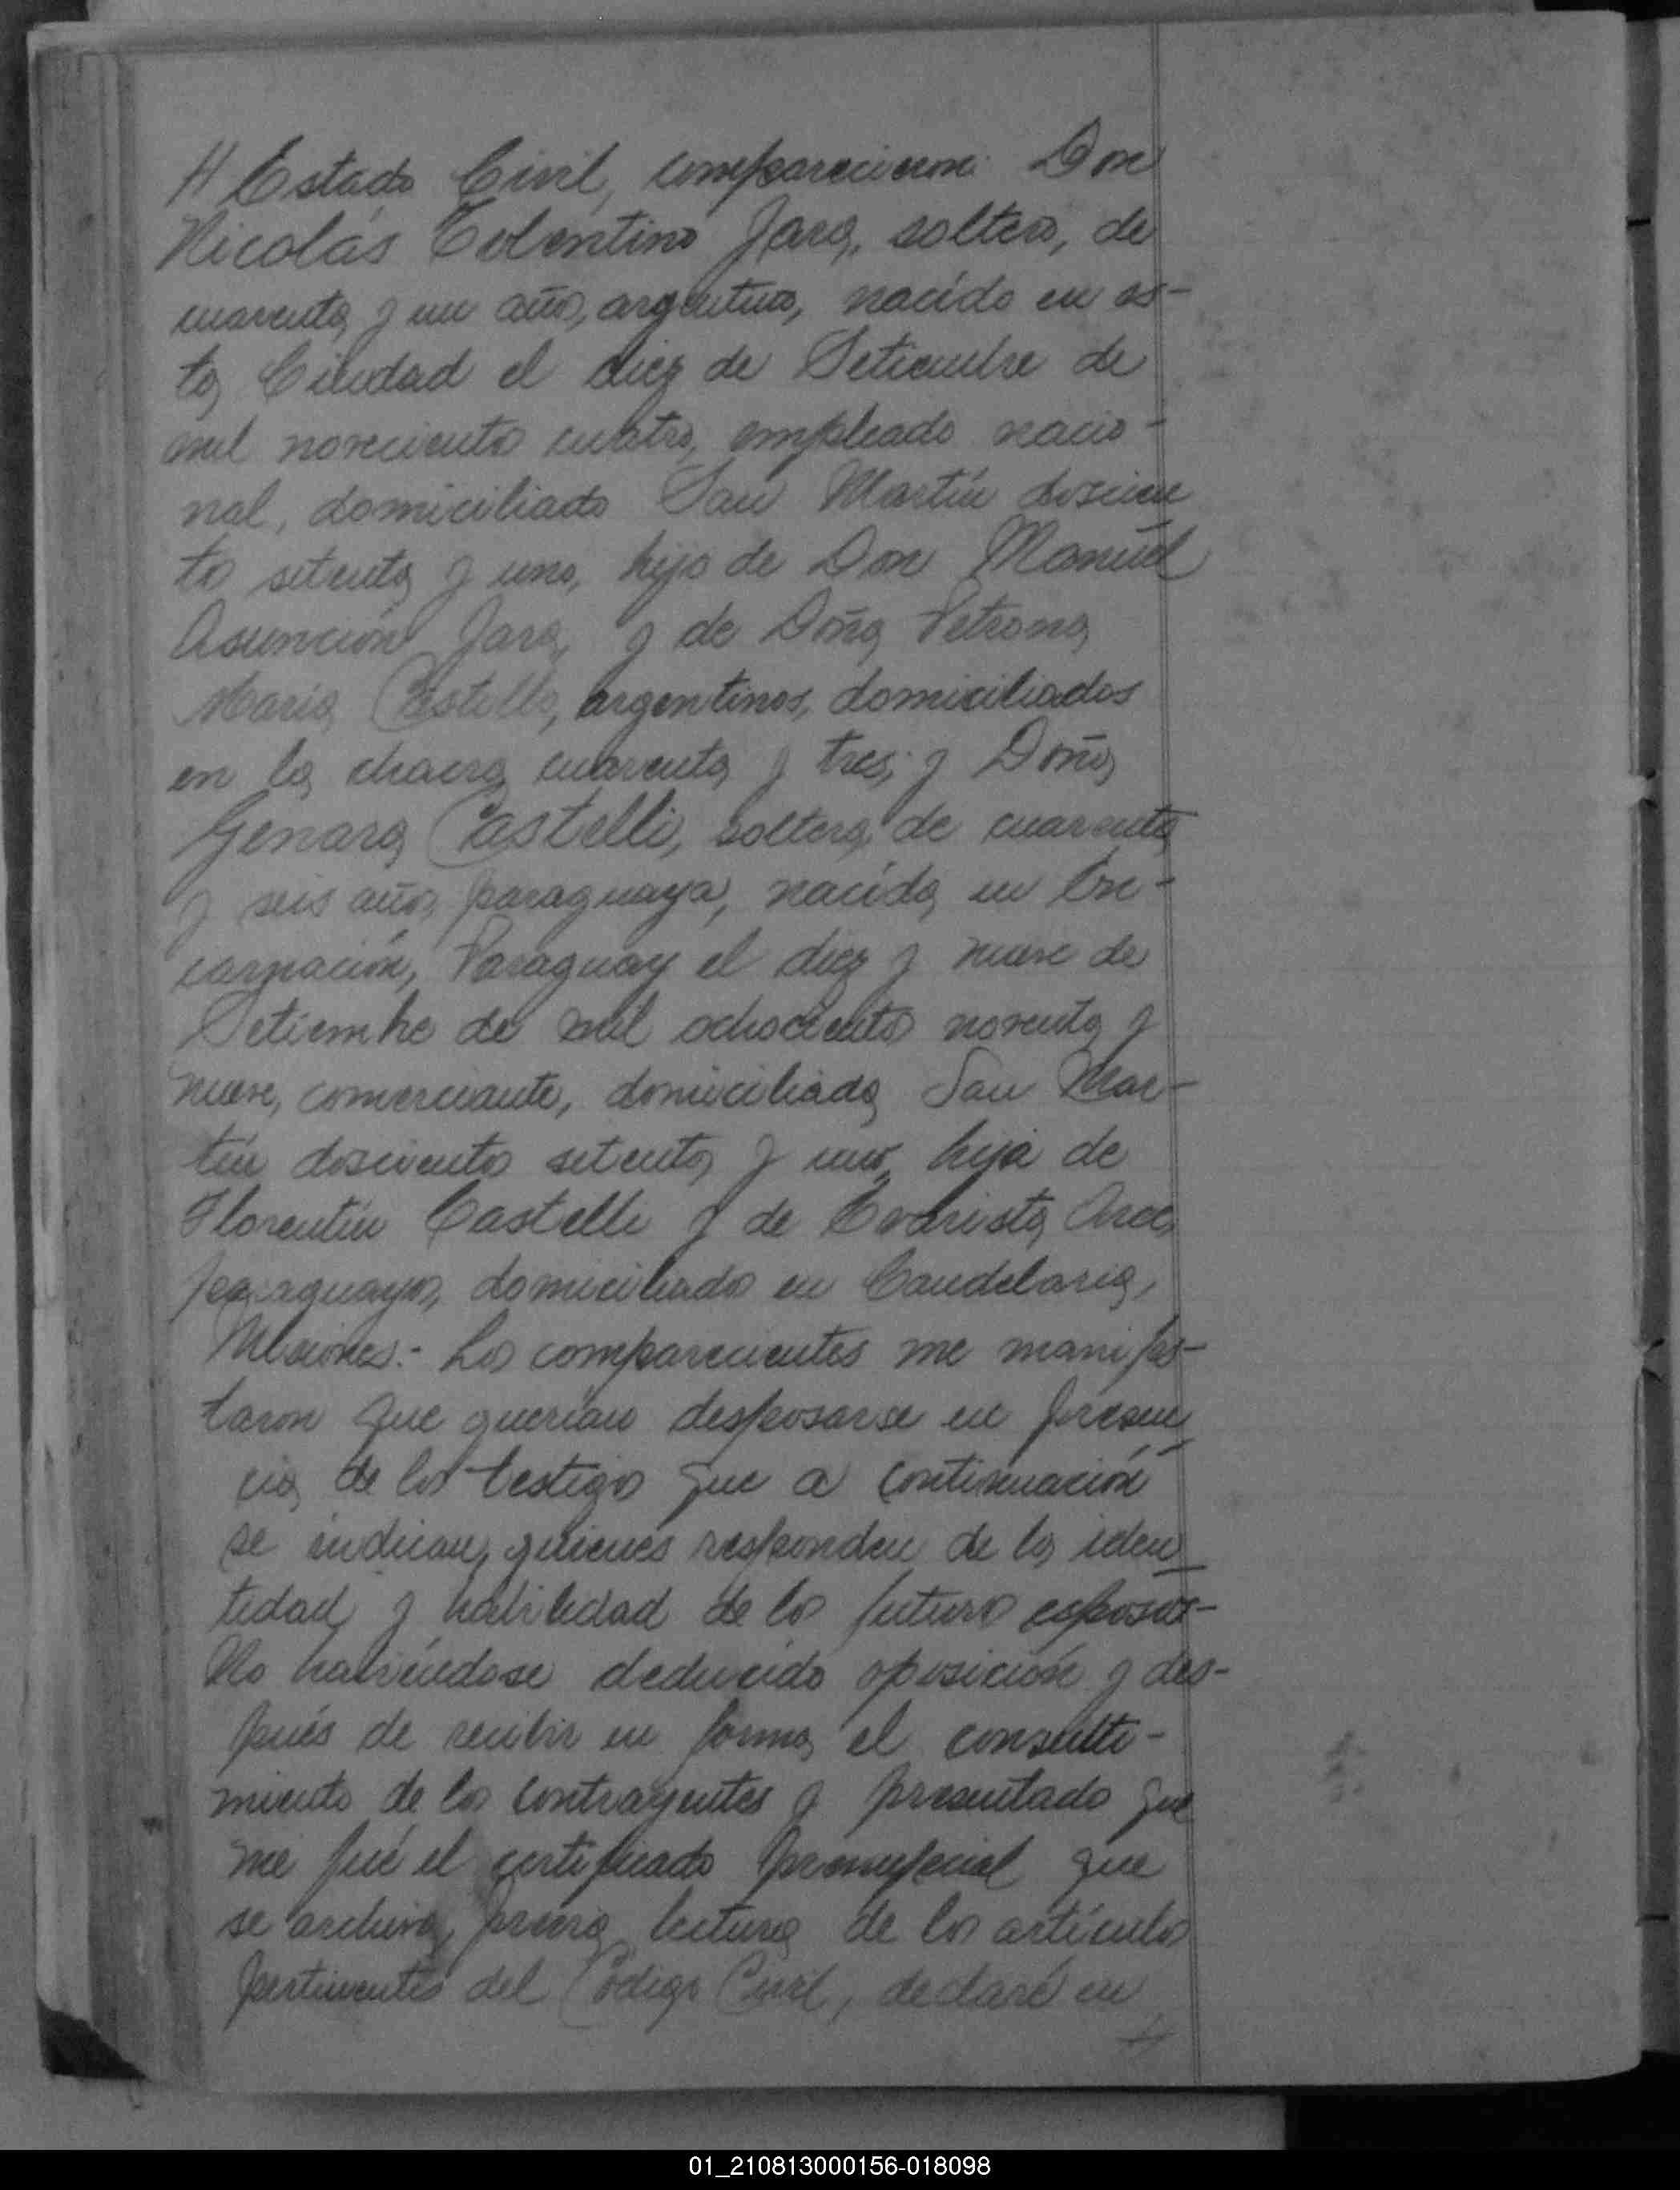 // Estado Civil, comparecieron Don
Nicolás Tolentino Jara, soltero, de
cuarenta y un años, argentino, nacido en es-
ta Ciudad el diez de Setiembre de
mil novecientos cuatro, empleado nacio-
nal, domiciliado San Martín doscien
tos setenta y uno, hijo de Don Manuel
Asunción Jara, y de Doña Petrona
María Castello, argentinos, domiciliados
en la chacra cuarenta y tres; y Doña
Genara Castelli, soltera, de cuarenta
y seis años, paraguaya, nacida en En-
carnación, Paraguay el diez y nueve de
Setiembre de mil ochocientos noventa y
nueve, comerciante, domiciliada San Mar-
tín doscientos setenta y uno, hija de
Florentín Castelli y de Evarista
paraguayos, domiciliados en Candelaria,
Misiones.- Los comparecientes me manifes-
taron que querían desposarse en presen
cia de los testigos que a continuación
se indican, quienes responden de la iden
tidad y habilidad de los futuros esposos-
No habiéndose deducido oposición y des-
pués de recibir en forma el consenti-
miento de los contrayentes y presentado que
me fué el certificado prenupcial que
se archiva, previa lectura de los artículos
pertinentes del Código Civil, declaré en
//
01_210813000156-018098